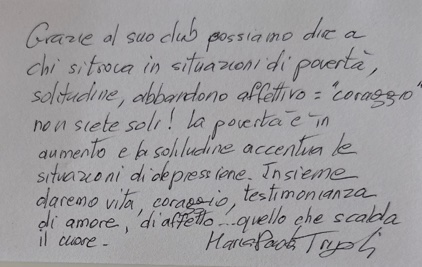 Grazie al suo club possiamo dire a
chi si trova in situazioni di povertà,
solitudine, abbandono affettivo = "coraggio"
non siete soli! La povertà è in
aumento e la solitudine accentua le
situazioni di depressione. Insieme
daremo vita, coraggio, testimonianza
di amore, di affetto ... quello che scalda
il cuore -
Maria Paola